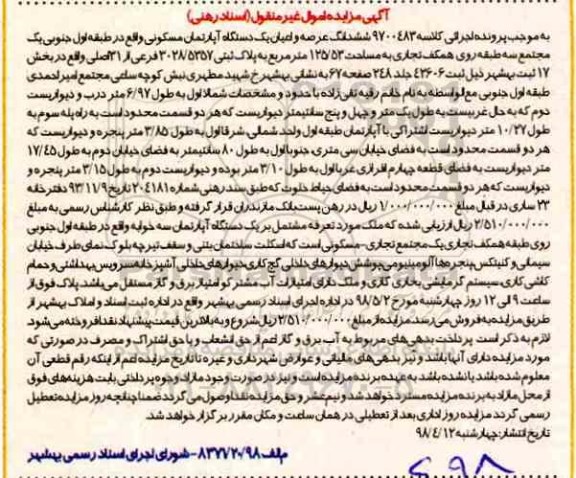 آگهی مزایده اموال غیر منقول (اسناد رهنی)
به موجب پرونده اجرائی کلاسه ۹۷۰۰۴۸۳ ششدانگ عرصه و اعیان یک دستگاه آپارتمان مسکونی واقع در طبقه اول جنوبی یک
مجتمع سه طبقه روی همکف تجاری به مساحت ۱۲۵/۵۳ متر مربع به پلاک ثبتی ۳۰۲۸/۵۳۵۷ فرعی از ۳۱ اصلی واقع در بخش
۱۷ ثبت بهشهر ذیل ثبت ۴۳۶۰۶ جلد ۲۴۸ صفحه ۶۷ به نشانی بهشهر خ شهید مطهری نبش کوچه ساعی مجتمع امیراحمدی
طبقه اول جنوبی مع الواسطه به نام خانم رقیه تقی زاده با حدود و مشخصات شمالا اول به طول ۶/۹۷ متر درب و دیواریست
دوم که به حال غربیست به طول یک متر و چهل و پنج سانتیمتر دیواریست که هر دو قسمت محدود است به راه پله سوم به
طول ۱۰/۲۷ متر دیواریست اشتراکی با آپارتمان طبقه اول واحد شمالی شرقا اول به طول ۳/۸۵ متر پنجره و دیواریست که
هر دو قسمت محدود است به فضای خیابان سی متری، جنوبا اول به طول ۸۰ سانتیمتر به فضای خیابان دوم به طول ۱۷/۴۵
متر دیواریست به فضای قطعه چهارم افرازی غربا اول به طول ۳/۱۰ متر بوده و دیواریست دوم به طول ۳/۱۵ متر پنجره و
دیواریست که هر دو قسمت محدود است به فضای حیاط خلوت که طبق سند رهنی شماره ۲۰۴۱۸۱ تاریخ ۹۳/۱۱/۹ دفترخانه
۲۳ ساری در قبال مبلغ ۱/۰۰۰/۰۰۰/۰۰۰ ریال در رهن پست بانک مازندران قرار گرفته و طبق نظر کارشناس رسمی به مبلغ
۲/۵۱۰/۰۰۰/۰۰۰ ریال ارزیابی شده که ملک مورد تعرفه مشتمل بر یک دستگاه آپارتمان سه خوابه واقع در طبقه اول جنوبی
روی طبقه همکف تجاری یک مجتمع تجاری-مسکونی است که اسکلت ساختمان بتنی و سقف تیرچه بلوک نمای طرف خیابان
سیمانی و کنیتکس پنجره ها آلومینیومی پوشش دیوارهای داخلی گچ کاری دیوارهای داخلی آشپزخانه سرویس بهداشتی و حمام
کاشی کاری سیستم گرمایشی بخاری گازی و ملک دارای امتیازات آب مشترک و امتیاز برق و گاز مستقل می باشد پلاک فوق از
ساعت ۹ الی ۱۲ روز چهارشنبه مورخ ۹۸/۵/۲ در اداره اجرای اسناد رسمی بهشهر واقع در اداره ثبت اسناد و املاک بهشهر از
طریق مزایده به فروش می رسد. مزایده از مبلغ ۲/۵۱۰/۰۰۰/۰۰۰ ریال شروع و به بالاترین قیمت پیشنهاد نقدا فروخته می شود
لازم به ذکر است پرداخت بدهی های مربوط به آب برق و گاز اعم از حق انشعاب و یا حق اشتراک و مصرف در صورتی که
مورد مزایده دارای آنها باشد و نیز بدهی های مالیاتی و عوارض شهرداری و غیره تا تاریخ مزایده اعم از اینکه رقم قطعی آن
معلوم شده باشد یا نشده باشد به عهده برنده مزایده است و نیز در صورت وجود مازاد وجوه پرداختی بابت هزینه های فوق
از محل مازاد به برنده مزایده مسترد خواهد شد و نیم عشر و حق مزایده نقدا وصول می گردد ضمنا چنانچه روز مزایده تعطیل
رسمی گردد مزایده روز اداری بعد از تعطیلی در همان ساعت و مکان مقرر برگزار خواهد شد.
تاریخ انتشار: چهارشنبه ۹۸/۴/۱۲
م.الف ۸۳۷۷/۲۰/۹۸-شورای اجرای اسناد رسمی بهشهر